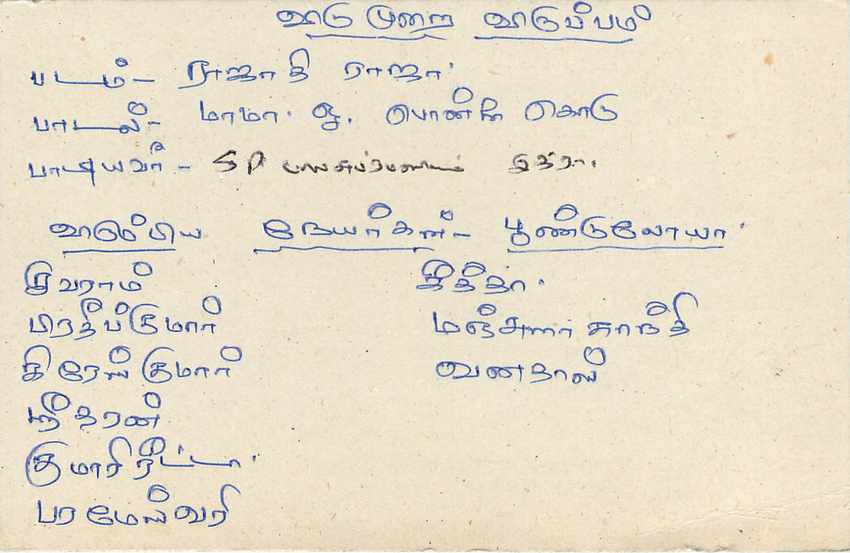 விடுமுறை விருப்பம்
படம் - ராஜாதி ராஜா
பாடல் - மாமா உ. பொண்ண கொடு
பாடியவர் - SP பாலசுப்ரமணியம் சித்ரா.
விரும்பிய நேயர்கள் - பூண்டுலோயா
சிவராம் கீத்தா.
பிரதீப்குமார் மஞ்சுளா காந்தி
கிரேஸ்குமார் வனதாஸ்
ஸ்ரீதரன்
குமாரி ரீட்டா
பரமேஸ்வரி